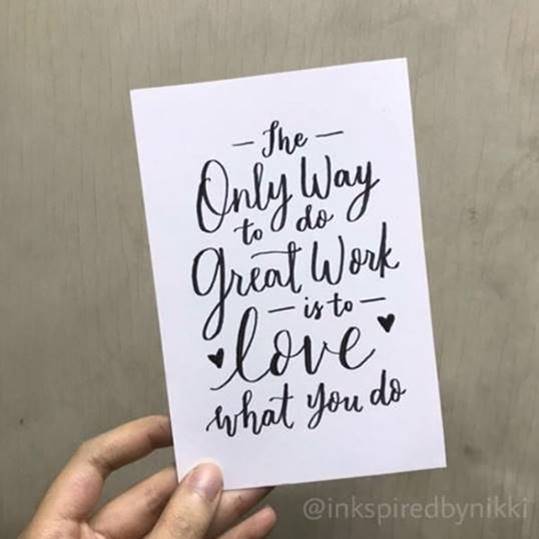 The
Only Way
to do
Great Work
is to
love
what you do
@inkspiredbynikki